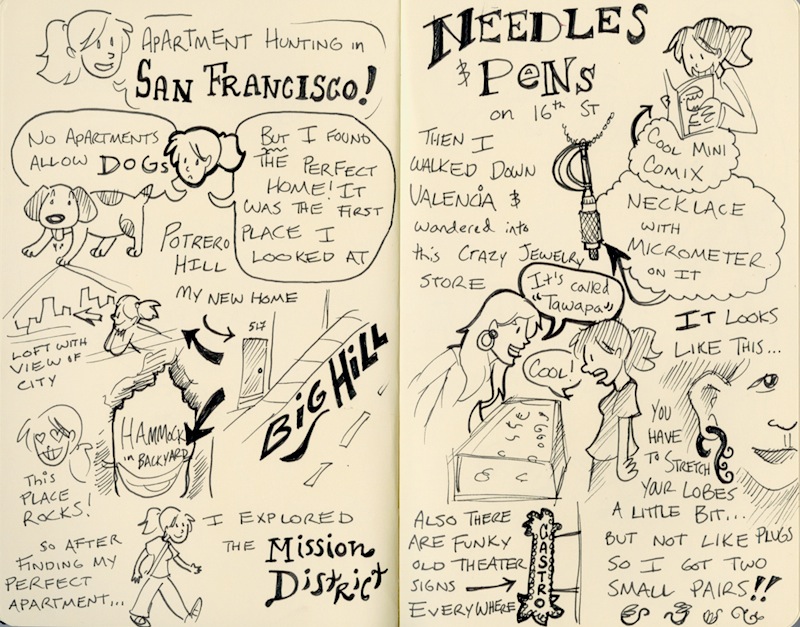 APARTMENT HUNTING in
SAN FRANCISCO!
NO APARTMENTS
ALLOW DOGS
BUT I FOUND
THE PERFECT
HOME! IT
WAS THE FIRST
PLACE I
LOOKED AT
POTRERO
HILL
MY NEW HOME
517
LOFT WITH
VIEW OF
CITY
BIG HILL
HAMMOCK
in BACKYARD
THIS
PLACE
ROCKS!
SO AFTER
FINDING MY
PERFECT
APARTMENT...
I EXPLORED
THE MISSION
DISTRICT
NEEDLES
& PENS
on 16th ST
COOL MINI
COMIX
THEN I
WALKED DOWN
VALENCIA &
wandered into
this CRAZY JEWELRY
STORE
NECKLACE
WITH
MICROMETER
ON IT
It's called
"Tawapa"
COOL!
IT LOOKS
LIKE THIS...
YOU
HAVE
TO STRETCH
YOUR LOBES
A LITTLE BIT...
BUT NOT LIKE PLUGS
SO I GOT TWO
SMALL PAIRS!!
ALSO THERE
ARE FUNKY
OLD THEATER
SIGNS
EVERYWHERE
CASTRO